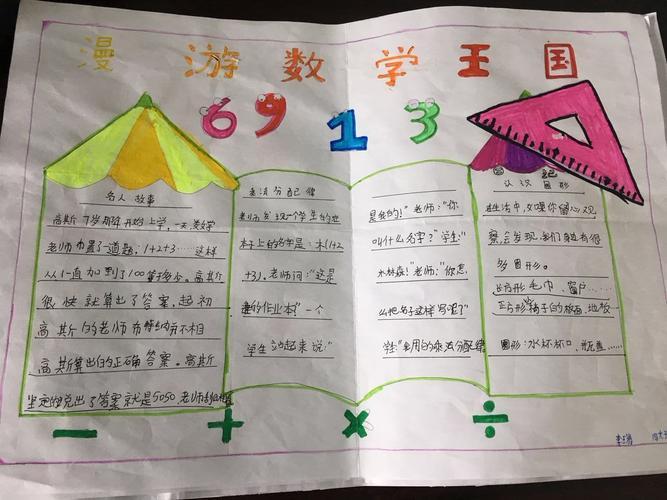 漫游数学王国
6 9 1 3
名人故事
高斯7岁那年开始上学，一天，数学
老师布置了一道题，1+2+3……这样
从1一直加到了100等于多少。高斯
很快就算出了答案，起初
高斯的老师布特纳并不相
高斯算出的正确答案。高斯
坐定的说出了答案就是5050，老师
乘法分配律
老师发现一个学生的作业
本子上的名字是：木(1+2
+3)。老师问："这是
谁的作业本？"一个
学生站起来说："
是我的！"老师："你
叫什么名字？"学生："
木林森！"老师："你怎
么把名字这样写呢？"
学生"我用的乘法分配律
认识图形
在生活中，如果你留心观
察会发现，我们身边有很
多图形。
长方形：毛巾、窗户……
正方形：椅子的板面、地板
圆形：水杯杯口、瓶盖……
- + × ÷